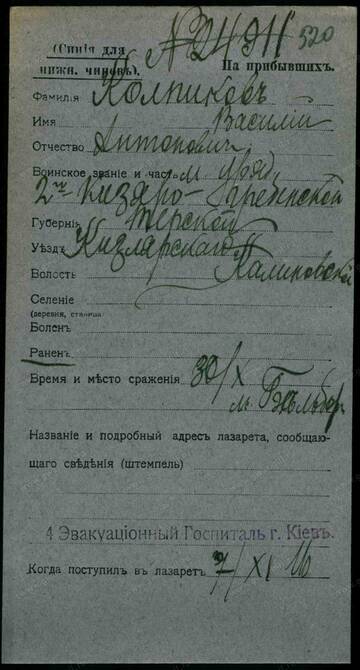 (Синія для № 24911 520
нижн. чиновъ). На прибывшихъ.
Фамилія Колпиковъ
Имя Василий
Отчество Антоновичъ
Воинское званіе и часть мл. уряд.
2го Кизляро-Гребенской
Губернія Терской
Уѣздъ Кизлярскаго
Волость Калиновской
Селеніе
(деревня, станица)
Боленъ
Раненъ
Время и мѣсто сраженія 30/X
м.
Названіе и подробный адресъ лазарета, сообщаю-
щаго свѣдѣнія (штемпель)
4 Эвакуаціонный Госпиталь г. Кіевъ.
Когда поступилъ въ лазаретъ 7/XI 16